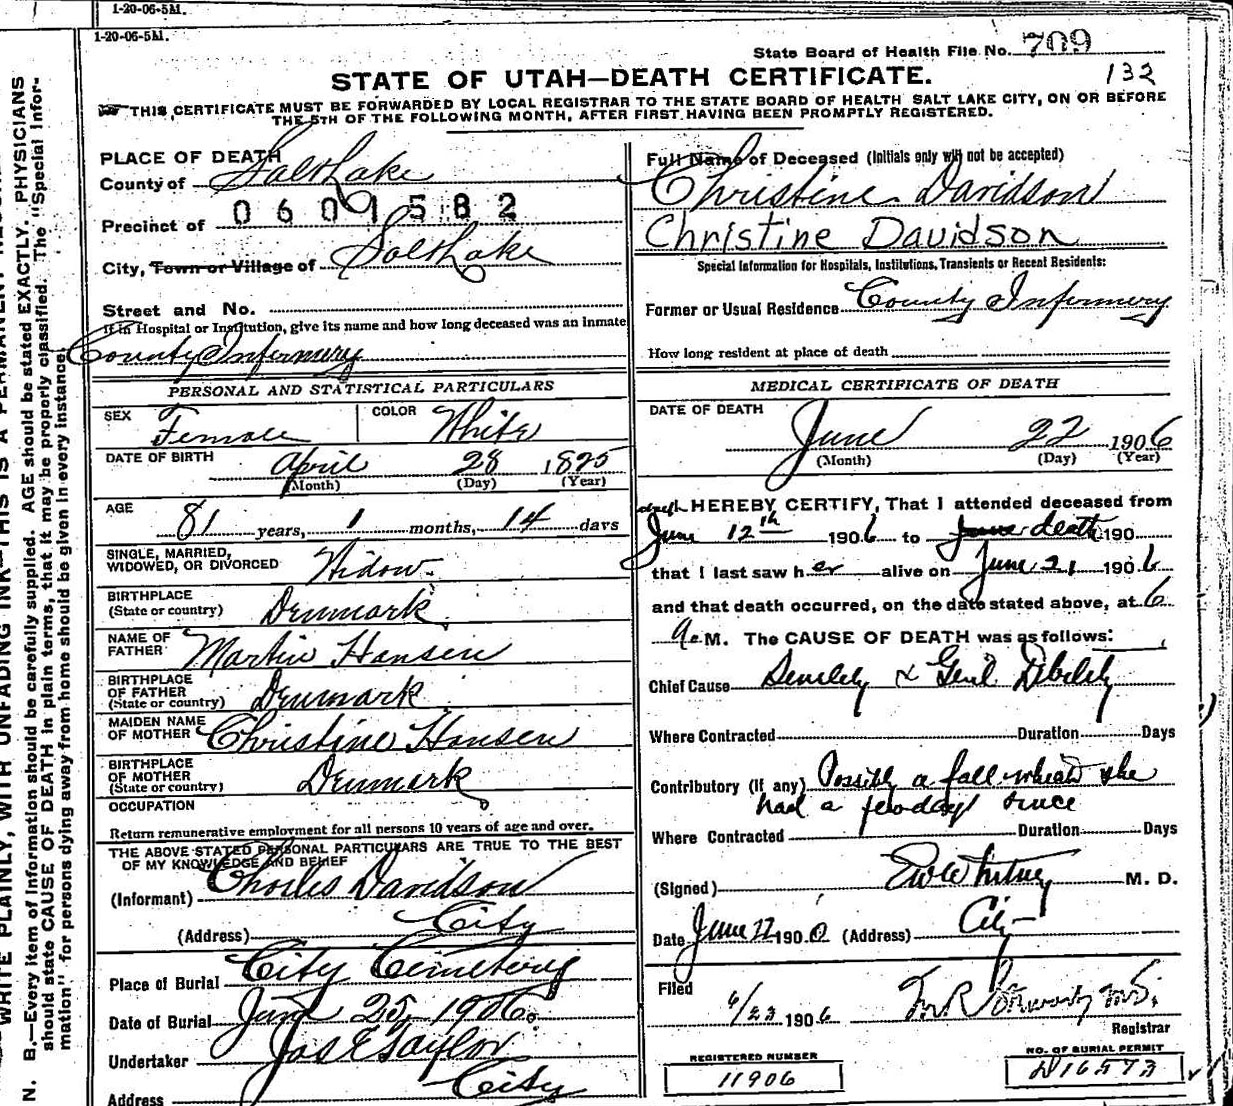 1-20-06-5M.
1-20-06-5M.
State Board of Health File No. 709
132
STATE OF UTAH—DEATH CERTIFICATE.
THIS CERTIFICATE MUST BE FORWARDED BY LOCAL REGISTRAR TO THE STATE BOARD OF HEALTH SALT LAKE CITY, ON OR BEFORE
THE 5TH OF THE FOLLOWING MONTH, AFTER FIRST HAVING BEEN PROMPTLY REGISTERED.
PLACE OF DEATH
County of Salt Lake
Precinct of 0601582
City, Town or Village of Salt Lake
Street and No.
If in Hospital or Institution, give its name and how long deceased was an inmate
County Infirmery
Full Name of Deceased (Initials only will not be accepted)
Christine Davidson
Christine Davidson
Special Information for Hospitals, Institutions, Transients or Recent Residents:
Former or Usual Residence County Infirmery
How long resident at place of death
PERSONAL AND STATISTICAL PARTICULARS
SEX Female COLOR White
DATE OF BIRTH April 28 1825
(Month) (Day) (Year)
AGE 81 years, 1 months, 14 days
SINGLE, MARRIED,
WIDOWED, OR DIVORCED Widow.
BIRTHPLACE
(State or country) Denmark
NAME OF
FATHER Martin Hansen
BIRTHPLACE
OF FATHER
(State or country) Denmark
MAIDEN NAME
OF MOTHER Christine Hansen
BIRTHPLACE
OF MOTHER
(State or country) Denmark
OCCUPATION
Return remunerative employment for all persons 10 years of age and over.
THE ABOVE STATED PERSONAL PARTICULARS ARE TRUE TO THE BEST
OF MY KNOWLEDGE AND BELIEF
(Informant) Charles Davidson
(Address) City
Place of Burial City Cemetery
Date of Burial June 25, 1906.
Undertaker Jos E Taylor
Address City
MEDICAL CERTIFICATE OF DEATH
DATE OF DEATH
June 22 1906
(Month) (Day) (Year)
HEREBY CERTIFY, That I attended deceased from
June 12th 1906 to June death 190
that I last saw her alive on June 21 1906
and that death occurred, on the date stated above, at 6
a. M. The CAUSE OF DEATH was as follows:
Chief Cause Senility & Genl Debility
Where Contracted Duration Days
Contributory (if any) Possibly a fall which she
had a few days since
Where Contracted Duration Days
(Signed) M. D.
Date June 22 190 (Address) City
Filed
6/23 1906
Registrar
REGISTERED NUMBER
11906
NO. OF BURIAL PERMIT
D16573
WRITE PLAINLY, WITH UNFADING INK—THIS IS A PERMANENT
N. B.—Every item of information should be carefully supplied. AGE should be stated EXACTLY. PHYSICIANS
should state CAUSE OF DEATH in plain terms, that it may be properly classified. The "Special Infor-
mation" for persons dying away from home should be given in every instance.